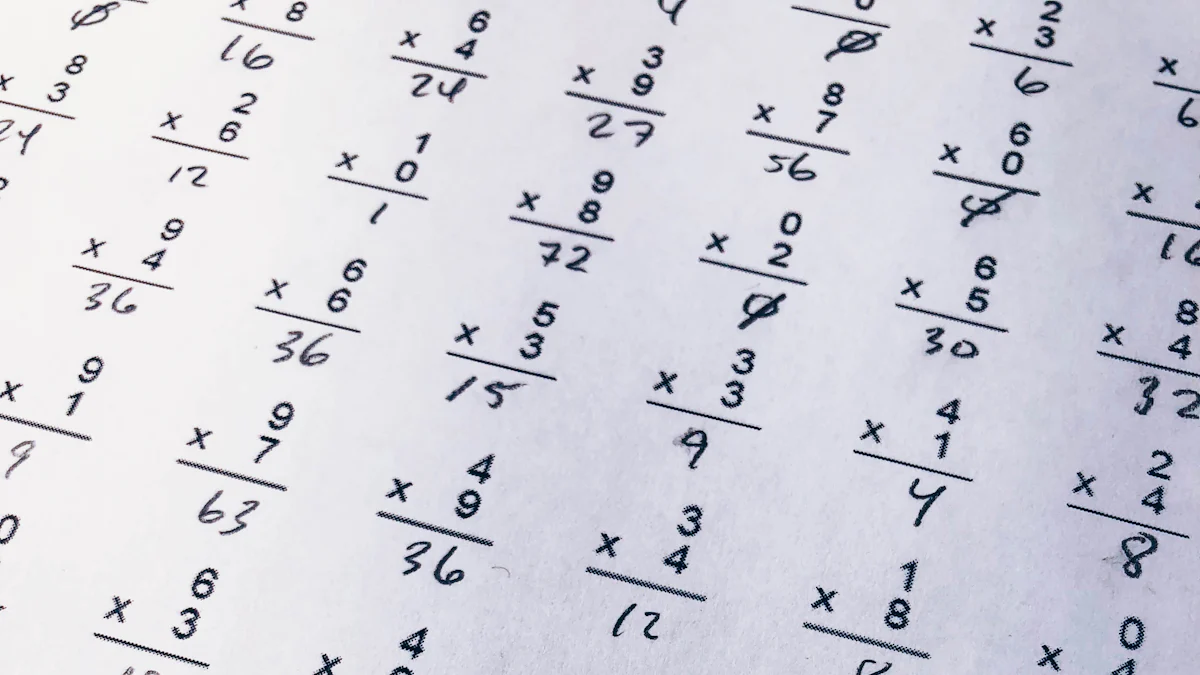 2
× 3 ×
4 0 6 6
× 8
6
× 4
3
× 9
8
× 7
6
× 0
×
0 16 24 27 56 0 16
8 2 1 9 0 6 8
× 3 × 6 × 0 × 8 × 2 × 5 × 4
24 12 1 72 0 30 32
9 6 5 3 4 2
× 4 × 6 × 3 × 3 × 1 × 4
36 36 15 9 4 8
9 9 4 3 1 0
× 1 × 7 × 9 × 4 × 8 ×
9 63 36 12
0 6 4
× 3 ×